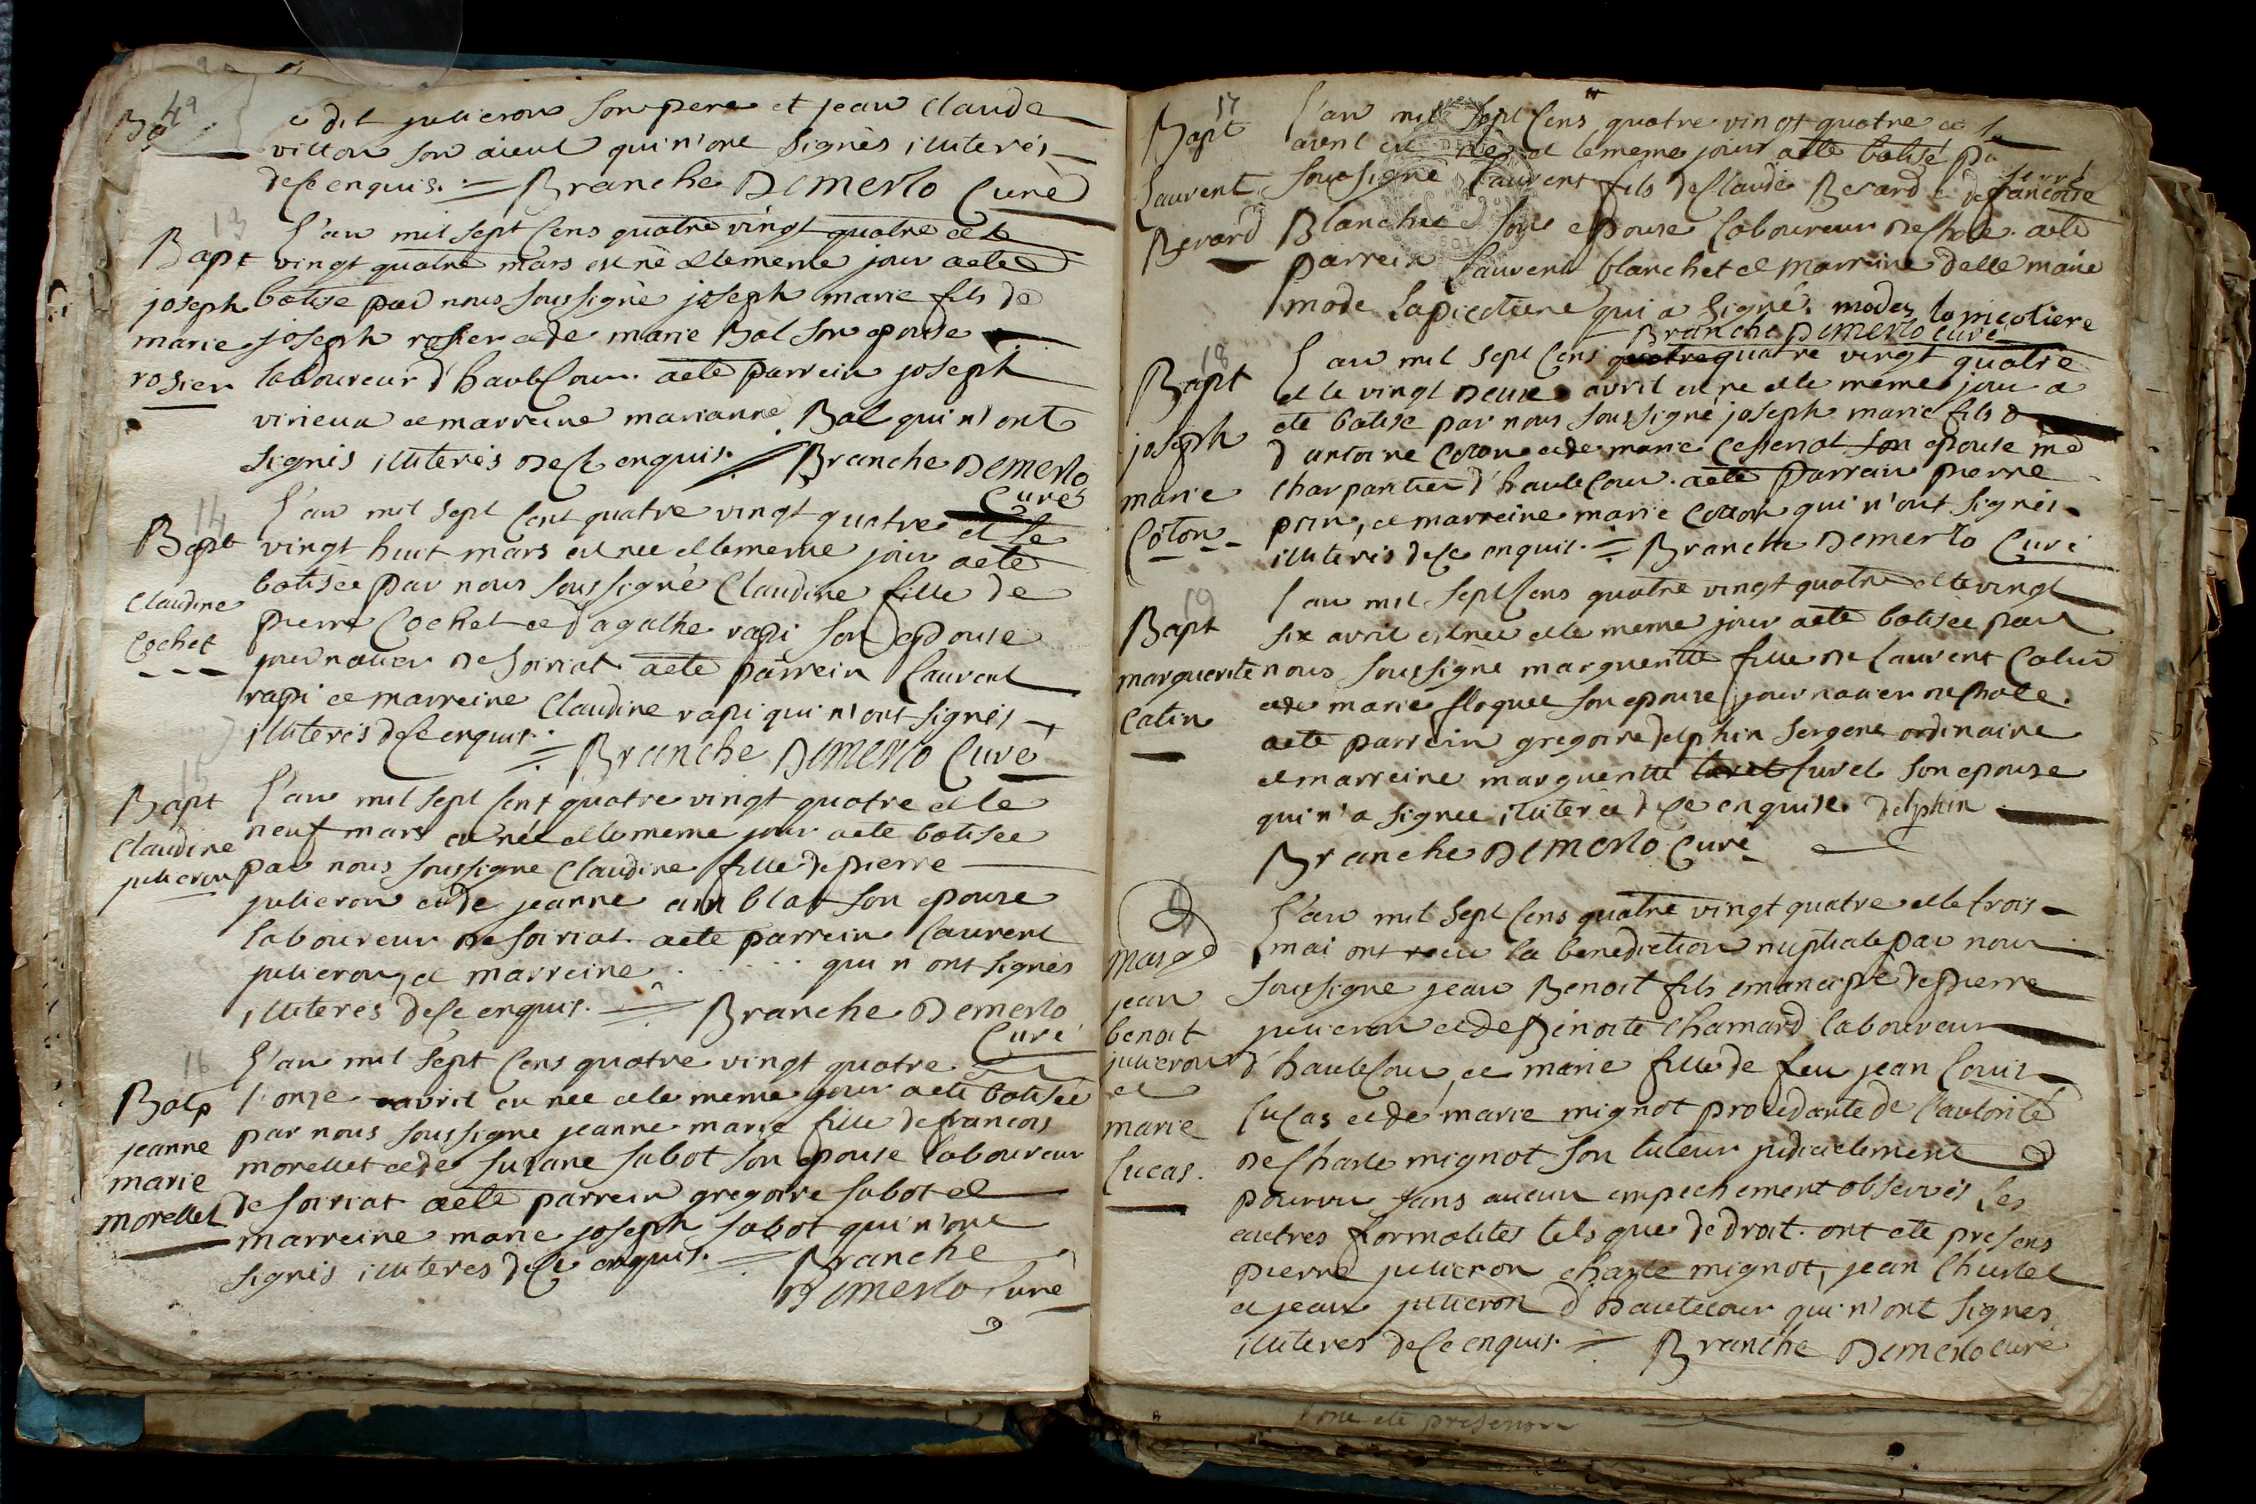 Ba
12
dit julieron son pere et jean claude
villon son aieul qui n'ont signés illiterés
de ce enquis. Branche Demerlo Curé
13
L'an mil sept cens quatre vingt quatre et le
Bapt
vingt quatre mars est né et le meme jour a eté
joseph
batisé par nous soussigné joseph marie fils de
marie
joseph rosier et de marie Bal son epouse
rosier
laboureur d'hautecour. a eté parrein joseph
virieux et marreine marianne Bal qui n'ont
signés illiterés de ce enquis. Branche Demerlo
Curé
14
L'an mil sept cent quatre vingt quatre et le
Bapt
vingt huit mars est née et le meme jour a eté
claudine
batisée par nous soussigné Claudine fille de
Cochet
pierre Cochet et d'agathe rapi son epouse
journalier de soiriat. a eté parrein laurent
rapi et marreine Claudine rapi qui n'ont signés
illiterés de ce enquis. Branche Demerlo Curé
15
Bapt
L'an mil sept cent quatre vingt quatre et le
Claudine
neuf mars est née et le meme jour a eté batisée
julieron
par nous soussigne Claudine fille de pierre
julieron et de jeanne am blar son epouse
laboureur de soiriat. a eté parrein laurent
julieron, et marreine . . . . . . qui n'ont signés
illiterés de ce enquis. Branche Demerlo
Curé
16
L'an mil sept cens quatre vingt quatre et
Batp
l'onze avril est née et le meme jour a eté batisée
jeanne
par nous soussigne jeanne marie fille de francois
marie
morellet et de suzane sabot son epouse laboureur
morellet
de soiriat a eté parrein gregoire sabot et
marreine marie joseph sabot qui n'ont
signés illiteres de ce enquis. Branche
Demerlo Curé
17
Bapt
L'an mil sept cens quatre vingt quatre et le
avril est né et le meme jour a eté batisé pa
Laurent
soussigné Laurent fils de claude Berard et de francoise
Berard
Blanchet son epouse laboureur de chole. a eté
parrein laurent blanchet et marreine delle marie
mode lapicotiere qui a signé. modes la picotiere
Branche Demerlo curé
18
L'an mil sept cens quatre quatre vingt quatre
Bapt
et le vingt deux avril est né et le même jour a
eté batisé par nous soussigné joseph marie fils
joseph
d'antoine coton et de marie son epouse
marie
charpantier d'hautecour. a eté parrain pierre
Coton
prin, et marreine marie Cotton qui n'ont signés
illiterés de ce enquis. Branche Demerlo Curé
19
L'an mil sept cens quatre vingt quatre et le vingt
Bapt
six avril est née et le meme jour a eté batisée par
marguerite
nous soussigné margueritte fille de laurent Catin
catin
et de marie floquet son epouse journalier de chole.
a eté parrein gregoire delphin sergent ordinaire
et marreine margueritte curet son epouse
qui n'a signée illiterée de ce enquise. delphin
Branche Demerlo Curé
L'an mil sept cens quatre vingt quatre et le trois
Mariage
mai ont recu la benediction nuptiale par nous
jean
soussigne jean Benoit fils emancipé de pierre
benoit
julieron et de Benoite Chamard laboureur
julieron
d'hautecour, et marie fille de feu jean louis
et
lucas et de marie mignot procedante de l'autorité
marie
de Charle mignot son tuteur judiciellement
lucas.
pourvu sans aucun empechement observés les
autres formalités tels que de droit. ont eté presens
pierre julieron charle mignot, jean
et jean julieron d'hautecour qui n'ont signés
illiteres de ce enquis. Branche Demerlo curé